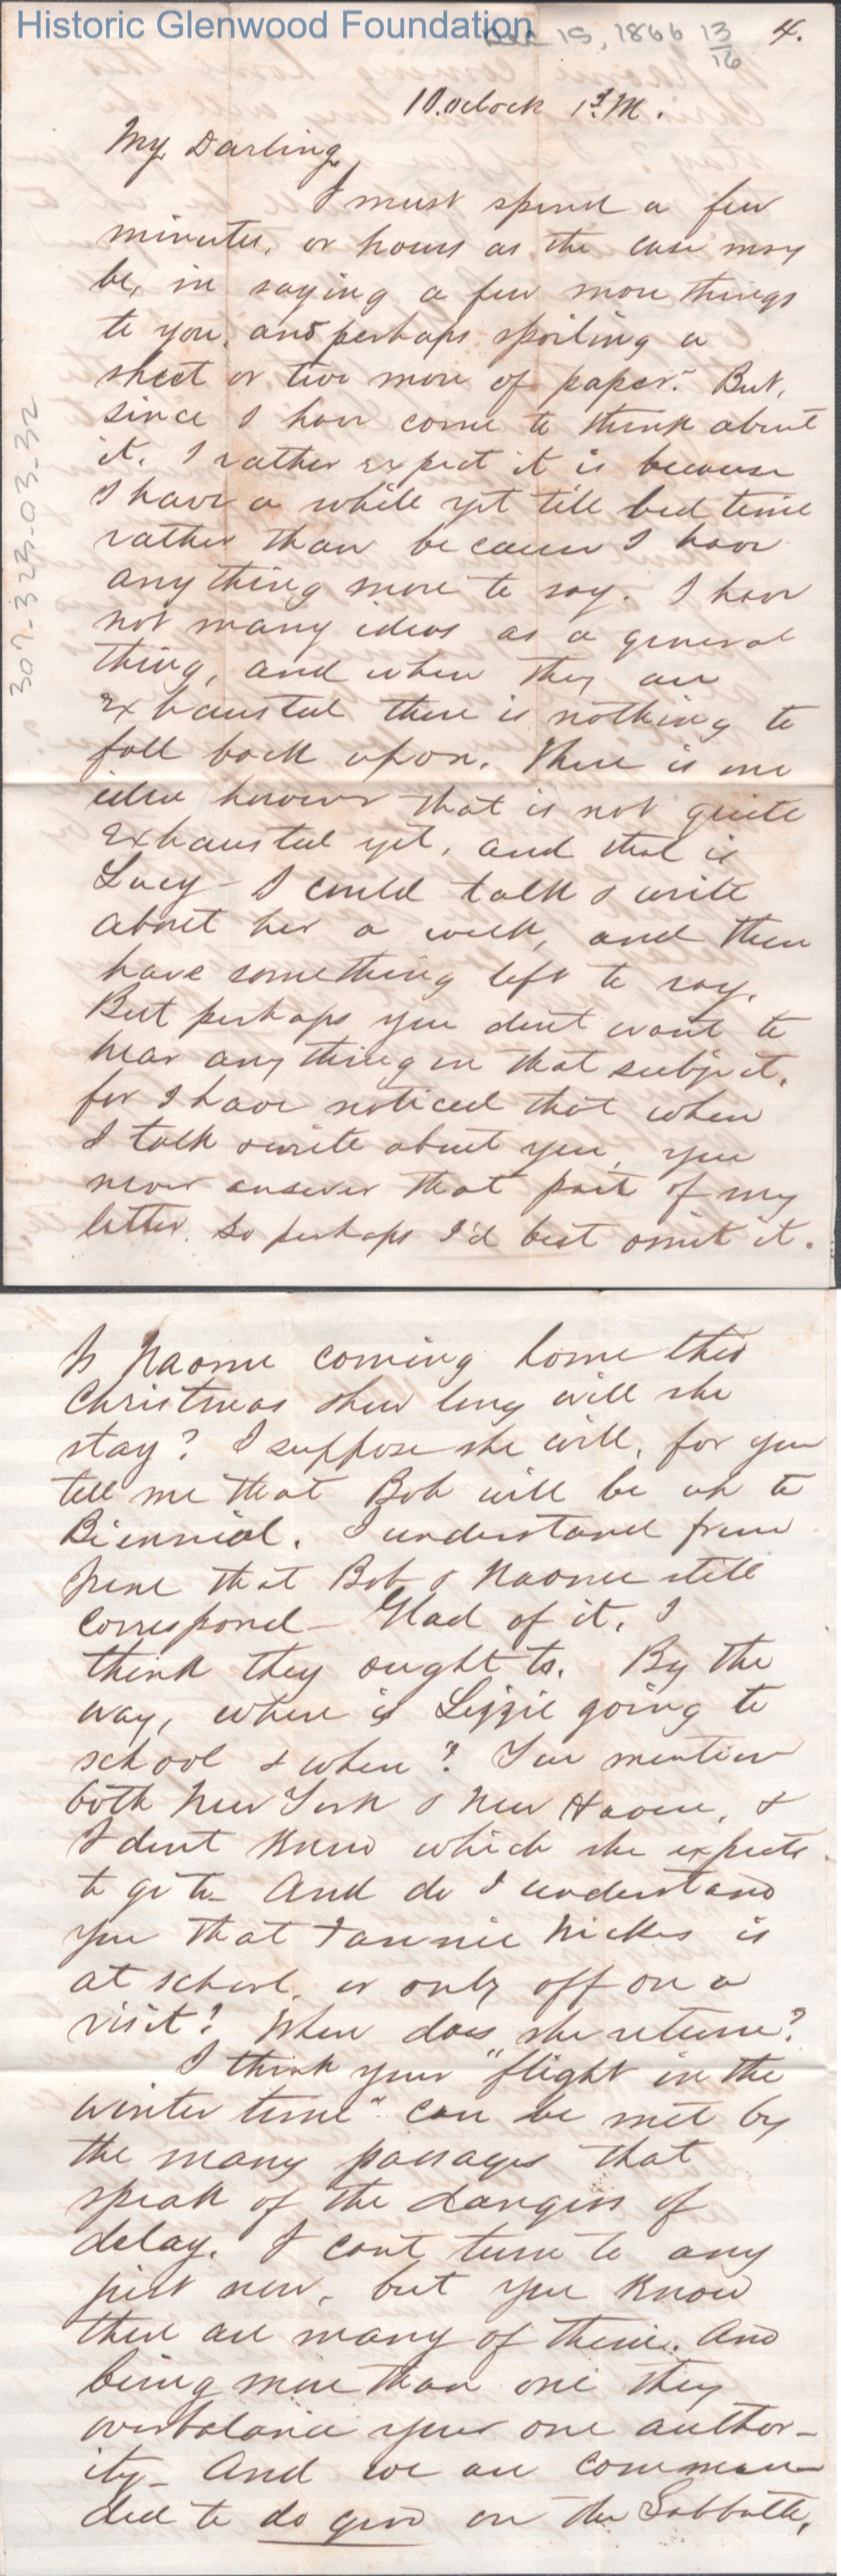 Historic Glenwood Foundation
Dec 15, 1866 13/16 4.
10. oclock P.M.
My Darling,
I must spend a few
minutes, or hours as the case may
be, in saying a few more things
to you, and perhaps spoiling a
sheet or two more of paper. But,
since I have come to think about
it, I rather expect it is because
I have a while yet till bed time
rather than because I have
anything more to say. I have
not many ideas as a general
thing, and when they are
exhausted there is nothing to
fall back upon. There is one
idea however that is not quite
exhausted yet, and that is
Lucy - I could talk & write
about her a week, and then
have something left to say.
But perhaps you dont want to
hear any thing on that subject,
for I have noticed that when
I talk or write about you, you
never answer that part of my
letter. So perhaps I'd best omit it.
307-323-03-32
Is Naomie coming home this
Christmas & how long will she
stay? I suppose she will, for you
tell me that Bob will be up to
Biennial. I understand from
June that Bob & Naomie still
correspond - Glad of it. I
think they ought to. By the
way, where is Lizzie going to
school & when? You mention
both New York & New Haven, &
I dont know which she expects
to go to - And do I understand
you that Fannie Nickes is
at school, or only off on a
visit? When does she return?
I think your "flight in the
winter time" can be met by
the many passages that
speak of the dangers of
delay. I cant turn to any
just now, but you know
there are many of them. And
being more than one they
overbalance your one author-
ity - And we are comman-
ded to do good on the Sabbath,